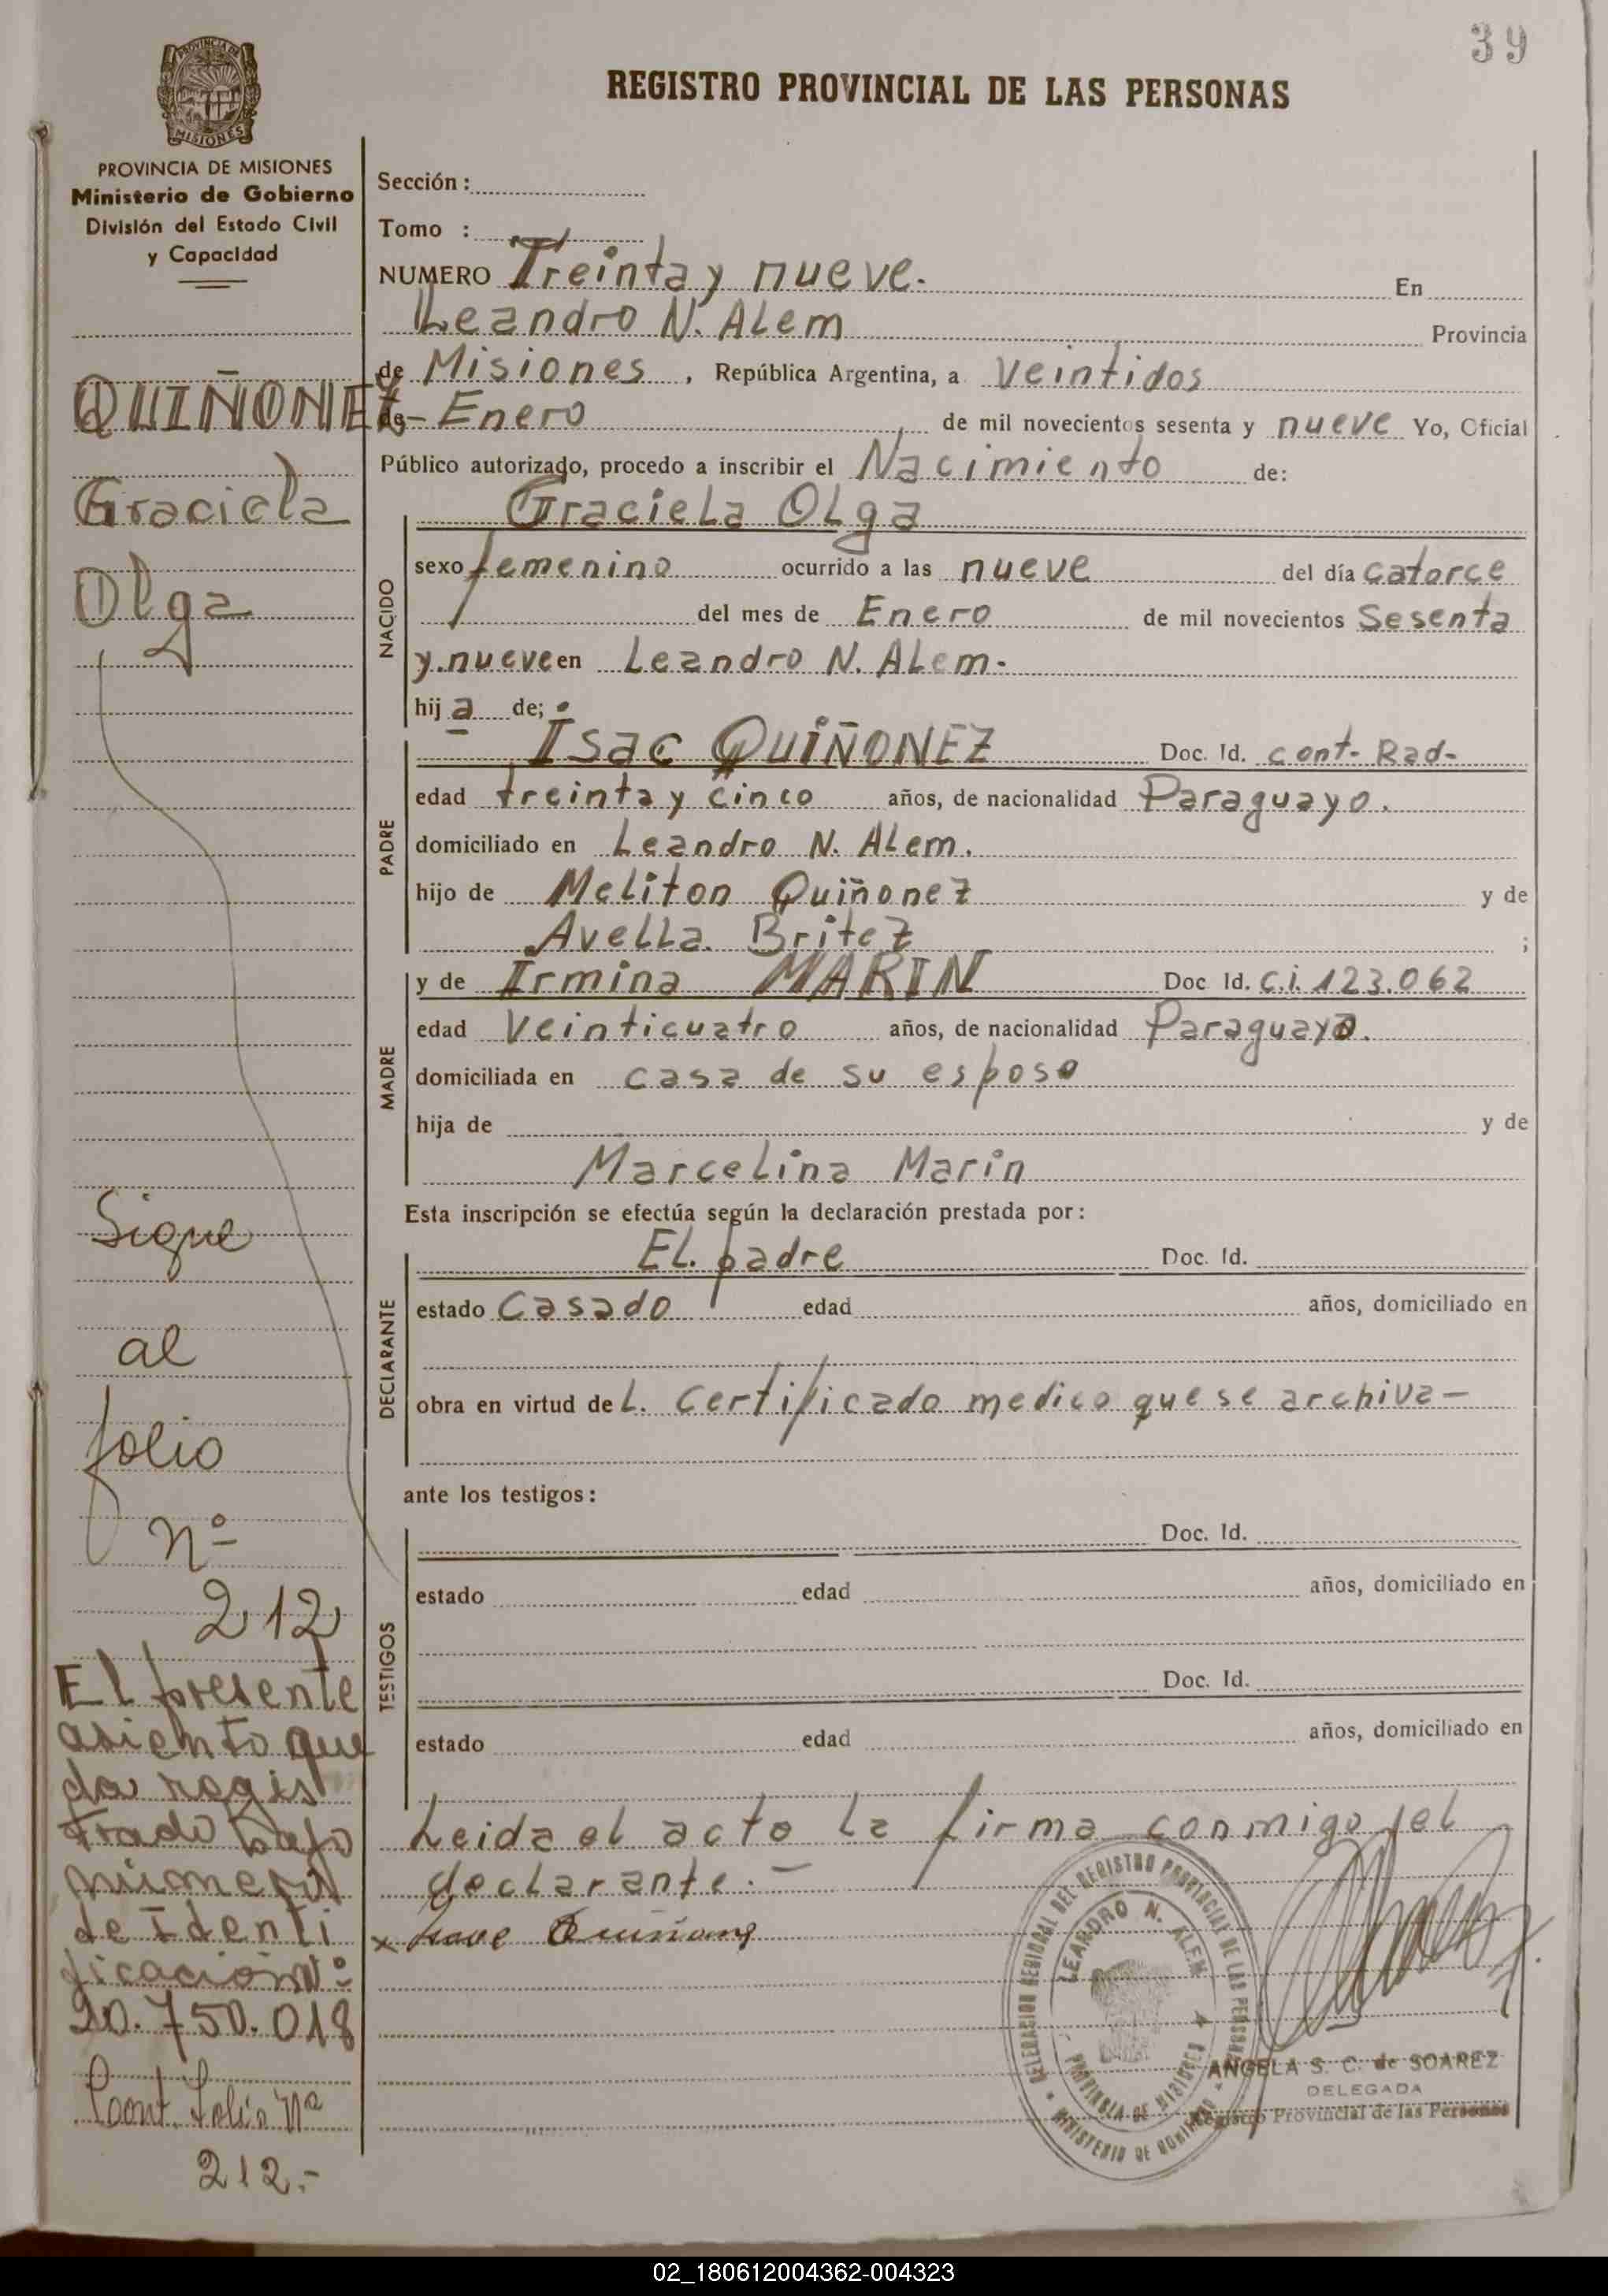 39
REGISTRO PROVINCIAL DE LAS PERSONAS
PROVINCIA DE MISIONES
Ministerio de Gobierno
División del Estado Civil
y Capacidad
QUIÑONEZ
Graciela
Olga
Sigue
al
folio
Nº
212
El presente
asiento que
da regis
trado bajo
número
de Identi
ficación Nº
20.750.018
Cont. Folio Nº
212.-
Sección :
Tomo :
NUMERO Treinta y nueve. En
Leandro N. Alem Provincia
de Misiones , República Argentina, a veintidos
de - Enero de mil novecientos sesenta y nueve Yo, Oficial
Público autorizado, procedo a inscribir el Nacimiento de:
NACIDO
Graciela Olga
sexo femenino ocurrido a las nueve del día catorce
del mes de Enero de mil novecientos Sesenta
y nueve en Leandro N. Alem.
hija de;
PADRE
Isac QUIÑONEZ Doc. Id. cont- Rad-
edad treinta y cinco años, de nacionalidad Paraguayo.
domiciliado en Leandro N. Alem.
hijo de Meliton Quiñonez y de
Avella Britez ;
MADRE
y de Irmina MARIN Doc Id. C.i. 123.062
edad veinticuatro años, de nacionalidad Paraguaya.
domiciliada en casa de su esposo
hija de y de
Marcelina Marin
Esta inscripción se efectúa según la declaración prestada por:
DECLARANTE
El padre Doc. Id.
estado Casado edad años, domiciliado en
obra en virtud del. Certificado medico que se archiva -
ante los testigos:
TESTIGOS
Doc. Id.
estado edad años, domiciliado en
Doc. Id.
estado edad años, domiciliado en
Leida el acta la firma conmigo el
declarante. -
x
DELEGACION REGIONAL DEL REGISTRO PROVINCIAL DE LAS PERSONAS
LEANDRO N. ALEM
PROVINCIA DE MISIONES
MINISTERIO DE GOBIERNO
ANGELA S. C. de SOAREZ
DELEGADA
Registro Provincial de las Personas
02_180612004362-004323